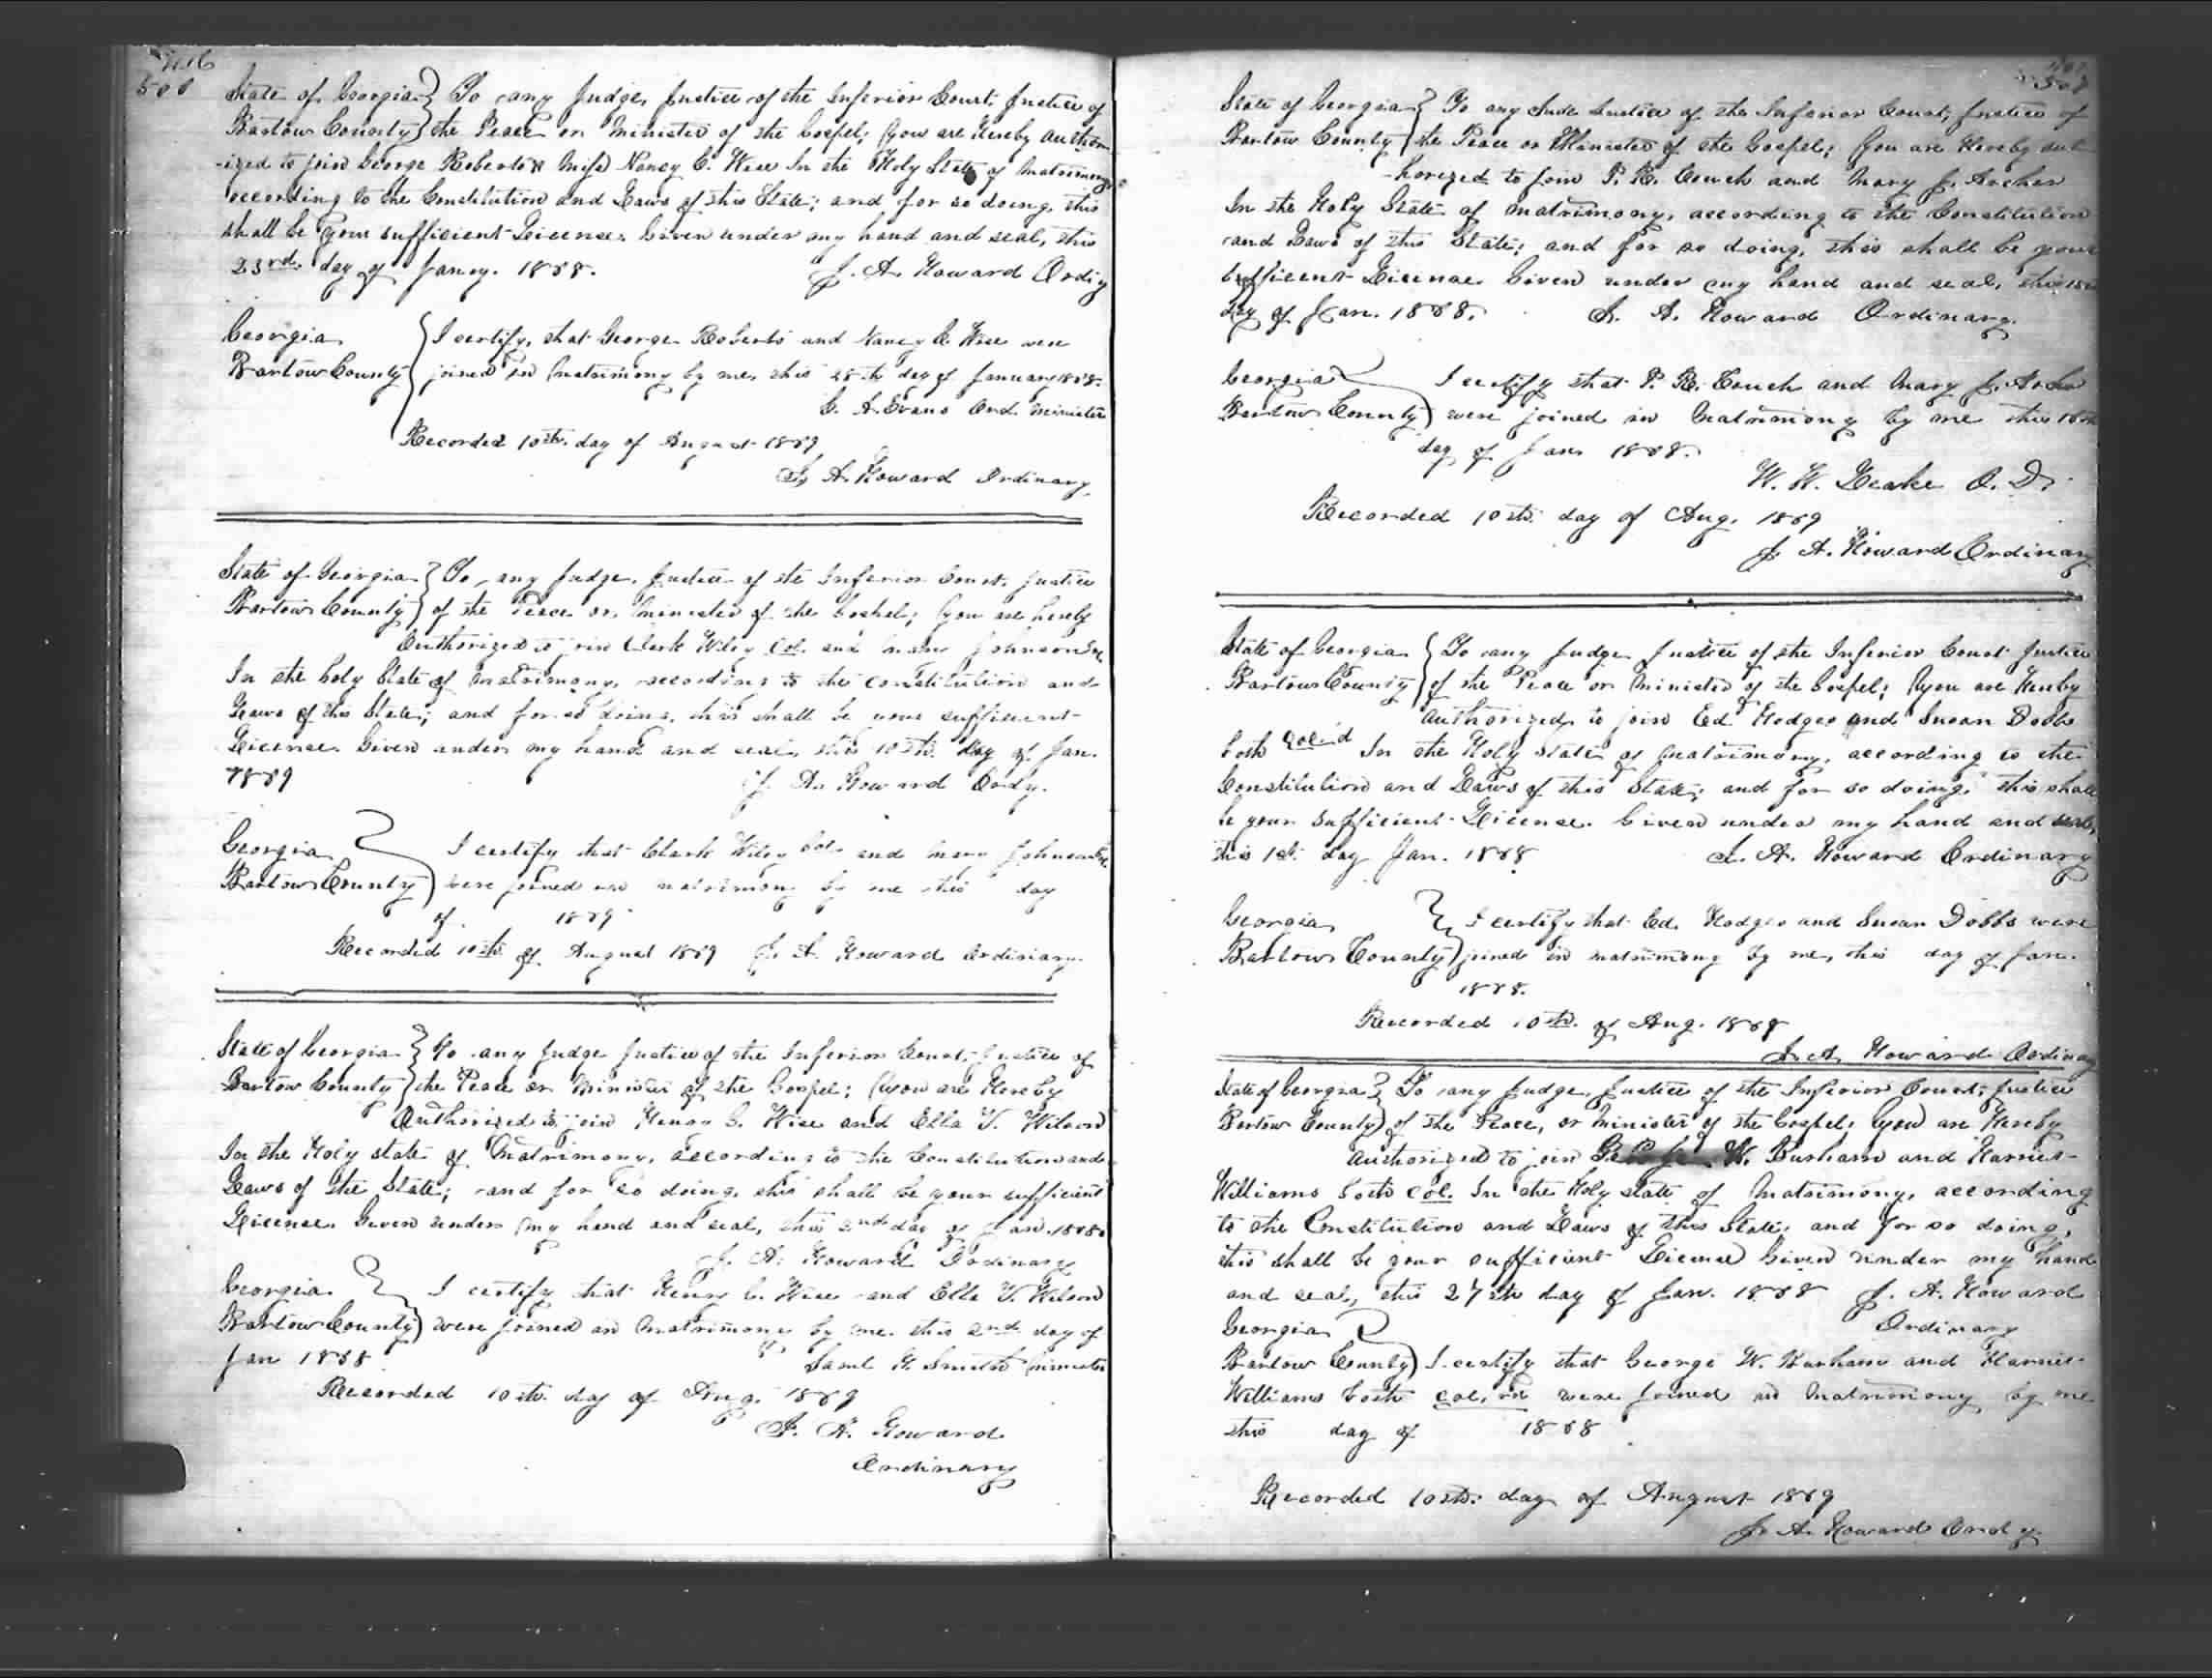 506
State of Georgia } To any Judge, Justice of the Inferior Court, Justice of
Bartow County } the Peace or Minister of the Gospel; You are Hereby Author
-ized to join George Roberts & Miss Nancy C. Wise In the Holy State of Matrimony
according to the Constitution and Laws of this State; and for so doing, this
shall be your sufficient License. Given under my hand and seal, this
23rd day of Jany. 1868. J. A. Howard Ordy
Georgia } I certify, that George Roberts and Nancy C. Wise were
Bartow County } joined in Matrimony by me, this 28th day of January 1868.
C. A. Evans Ord. Minister
Recorded 10th day of August 1869
J. A. Howard Ordinary.
State of Georgia } To any Judge, Justice of the Inferior Court, Justice
Bartow County } of the Peace or Minister of the Gospel; You are hereby
Authorized to join Clark Wiley Col. and Mary Johnson Col.
In the holy State of Matrimony, according to the Constitution and
Laws of this State; and for so doing, this shall be your sufficient
License. Given under my hand and seal, this 10th day of Jan.
1869 J. A. Howard Ordy.
Georgia } I certify that Clark Wiley Col. and Mary Johnson Col.
Bartow County } were joined in matrimony by me this day
of 1869
Recorded 10th of August 1869 J. A. Howard Ordinary.
State of Georgia } To any Judge Justice of the Inferior Court, Justice of
Bartow County } the Peace or Minister of the Gospel; You are Hereby
Authorized to join Henry C. Wise and Ella V. Wilson
In the Holy state of Matrimony, according to the Constitution and
Laws of the State; and for so doing, this shall be your sufficient
License. Given under my hand and seal, this 2nd day of Jan. 1868.
J. A. Howard Ordinary
Georgia } I certify that Henry C. Wise and Ella V. Wilson
Bartow County } were joined in Matrimony by me this 2nd day of
Jan 1868 Saml G. Smith Minister
Recorded 10th day of Aug. 1869
J. A. Howard
Ordinary
State of Georgia } To any Jude Justice of the Inferior Court, Justice of
Bartow County } the Peace or Minister of the Gospel; You are Hereby aut
-horized to join P. R. Couch and Mary J. Archer
In the Holy State of Matrimony, according to the Constitution
and Laws of this State; and for so doing, this shall be your
Sufficient License. Given under my hand and seal, this 15th
day of Jan. 1868. J. A. Howard Ordinary.
Georgia } I certify that P. R. Couch and Mary J. Archer
Bartow County } were joined in Matrimony by me this
day of Jan 1868.
W. H. Leake O. D.
Recorded 10th day of Aug. 1869
J. A. Howard Ordinary
State of Georgia } To any Judge Justice of the Inferior Court Justice
Bartow County } of the Peace or Minister of the Gospel; You are Hereby
authorized to join Ed. Hodges and Susan Dobbs
both Col'd In the Holy state of Matrimony, according to the
Constitution and Laws of this State; and for so doing, this shall
be your Sufficient License. Given under my hand and seal,
this 1st day Jan. 1868 J. A. Howard Ordinary
Georgia } I certify that Ed. Hodges and Susan Dobbs were
Bartow County } joined in matrimony by me, this day of Jan.
1868.
Recorded 10th of Aug. 1869
J. A. Howard Ordinary
State of Georgia } To any Judge, Justice of the Inferior Court, Justice
Bartow County } of the Peace, or Minister of the Gospel; You are Hereby
authorized to join W. Burham and Harriet
Williams both Col. In the Holy State of Matrimony, according
to the Constitution and Laws of this State; and for so doing,
this shall be your sufficient License Given under my hand
and seal, this 27th day of Jan. 1868 J. A. Howard
Ordinary
Georgia
Bartow County } I certify that George W. Burham and Harriet
Williams both col'rd were joined in Matrimony by me
this day of 1868
Recorded 10th day of August 1869
J. A. Howard Ordy